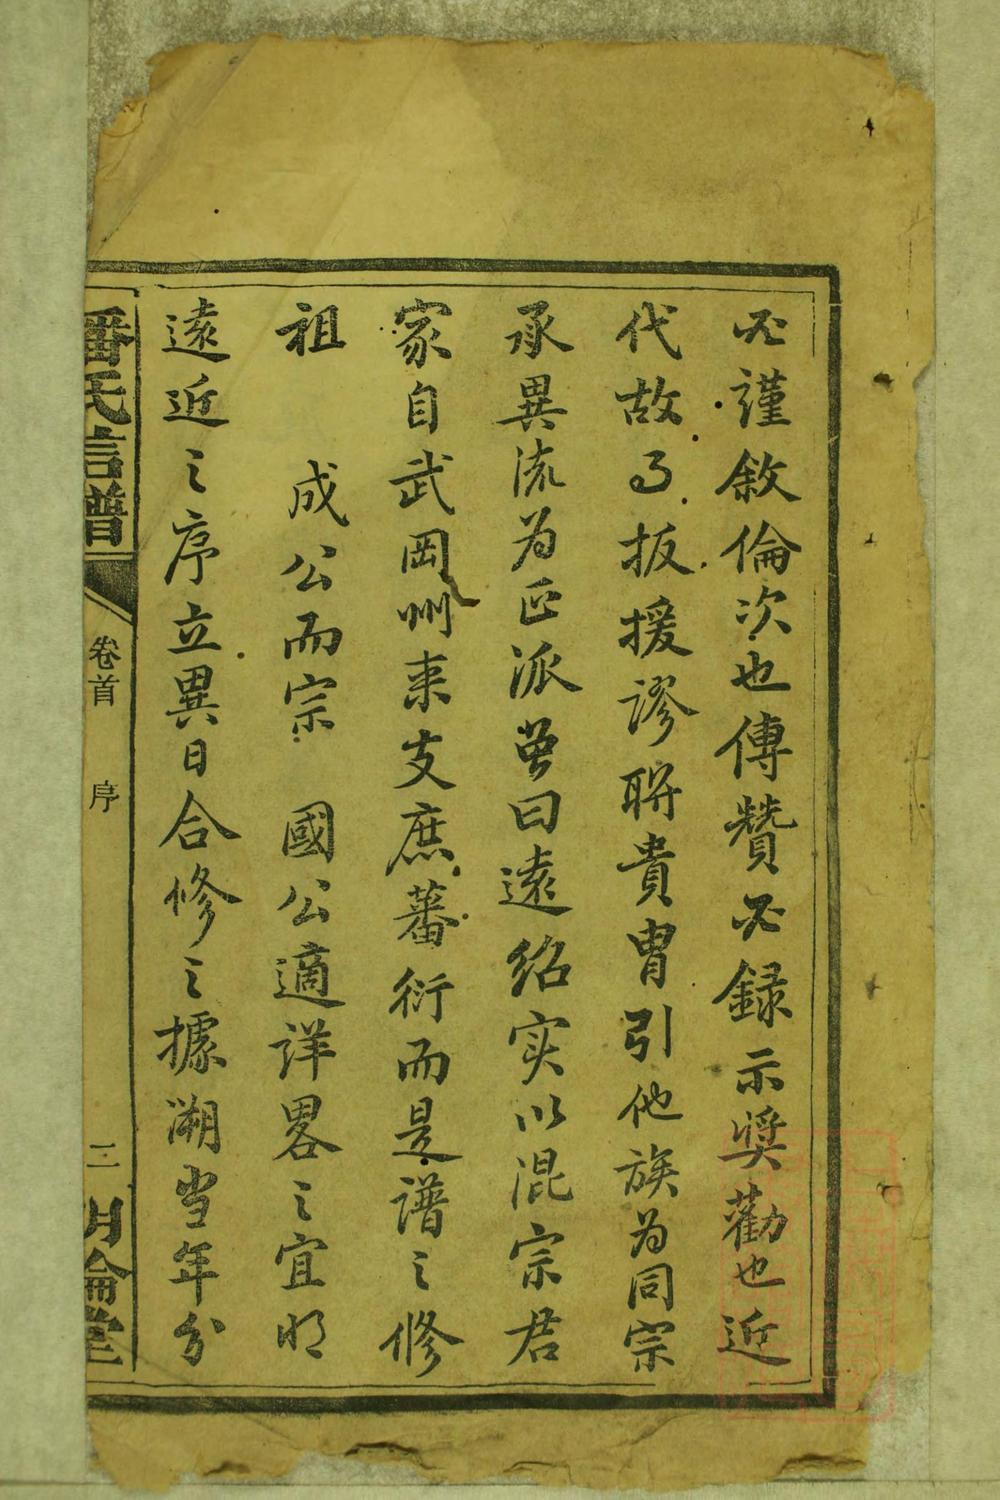 必謹敘倫次也傳贊必録示奬勸也近
代故事扳援謬聨貴胄引他族為同宗
承異流為正派曾曰遠紹实以混宗君
家自武岡州来支庶蕃衍而是譜之修
祖　成公而宗　國公適詳畧之宜明
遠近之序立異日合修之據溯当年分
潘氏信譜
卷首　序
二
明倫堂